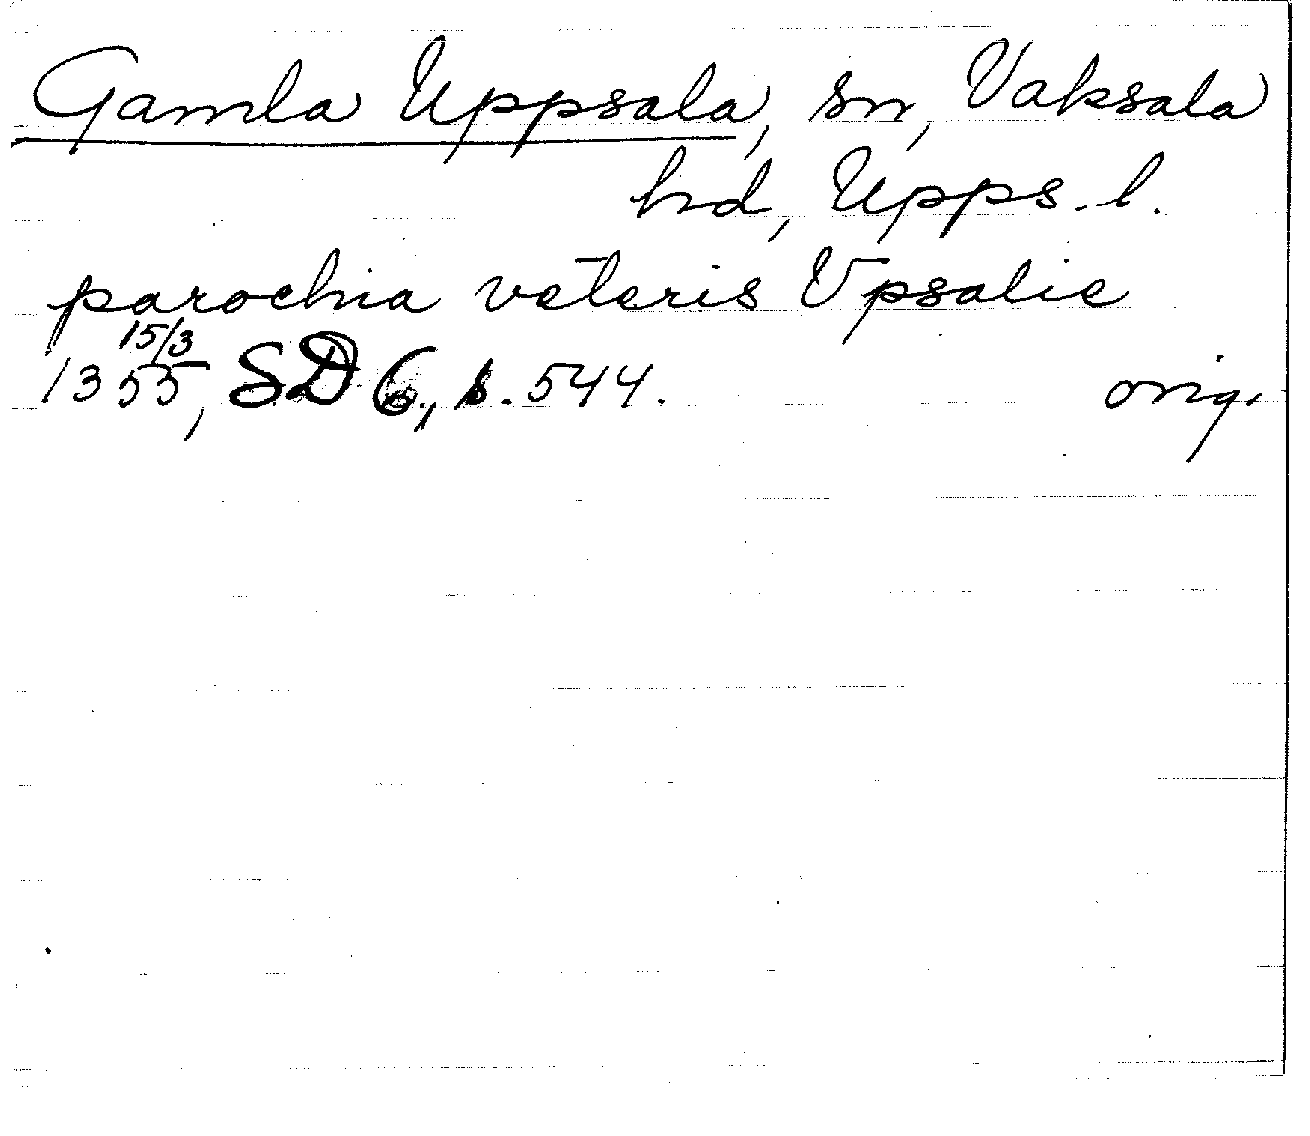 Gamla Uppsala, sn, Vaksala
hd, Upps. l.
parochia veteris Vpsalie
15/3
1355, SD 6, s. 544. orig.